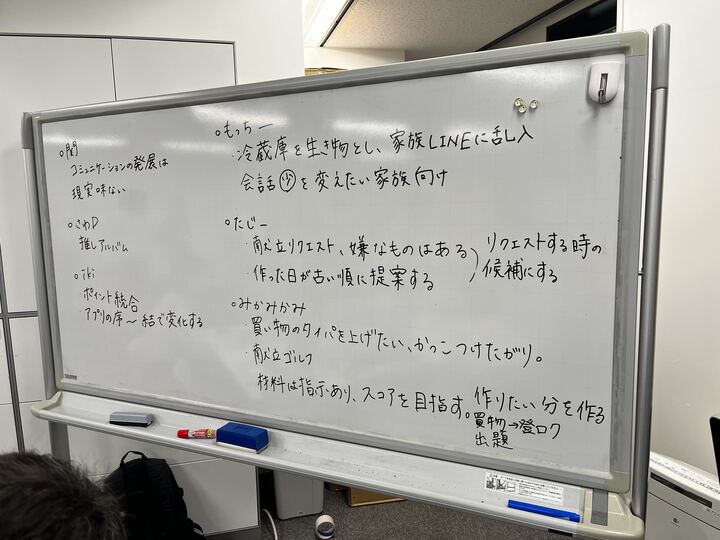 ○関
コミュニケーションの発展は
現実味ない
○さわD
推しアルバム
○iki
ポイント統合
アプリの序〜結で変化する
○もっちー
・冷蔵庫を生き物とし、家族LINEに乱入
会話少を変えたい家族向け
○たじー
・献立リクエスト、嫌なものはある
・作った日が古い順に提案する
リクエストする時の
候補にする
○みかみかみ
・買い物のタイパを上げたい、かっこつけたがり。
・献立ゴルフ
材料は指示あり、スコアを目指す。
作りたい分を作る
買物→登ロク
出題